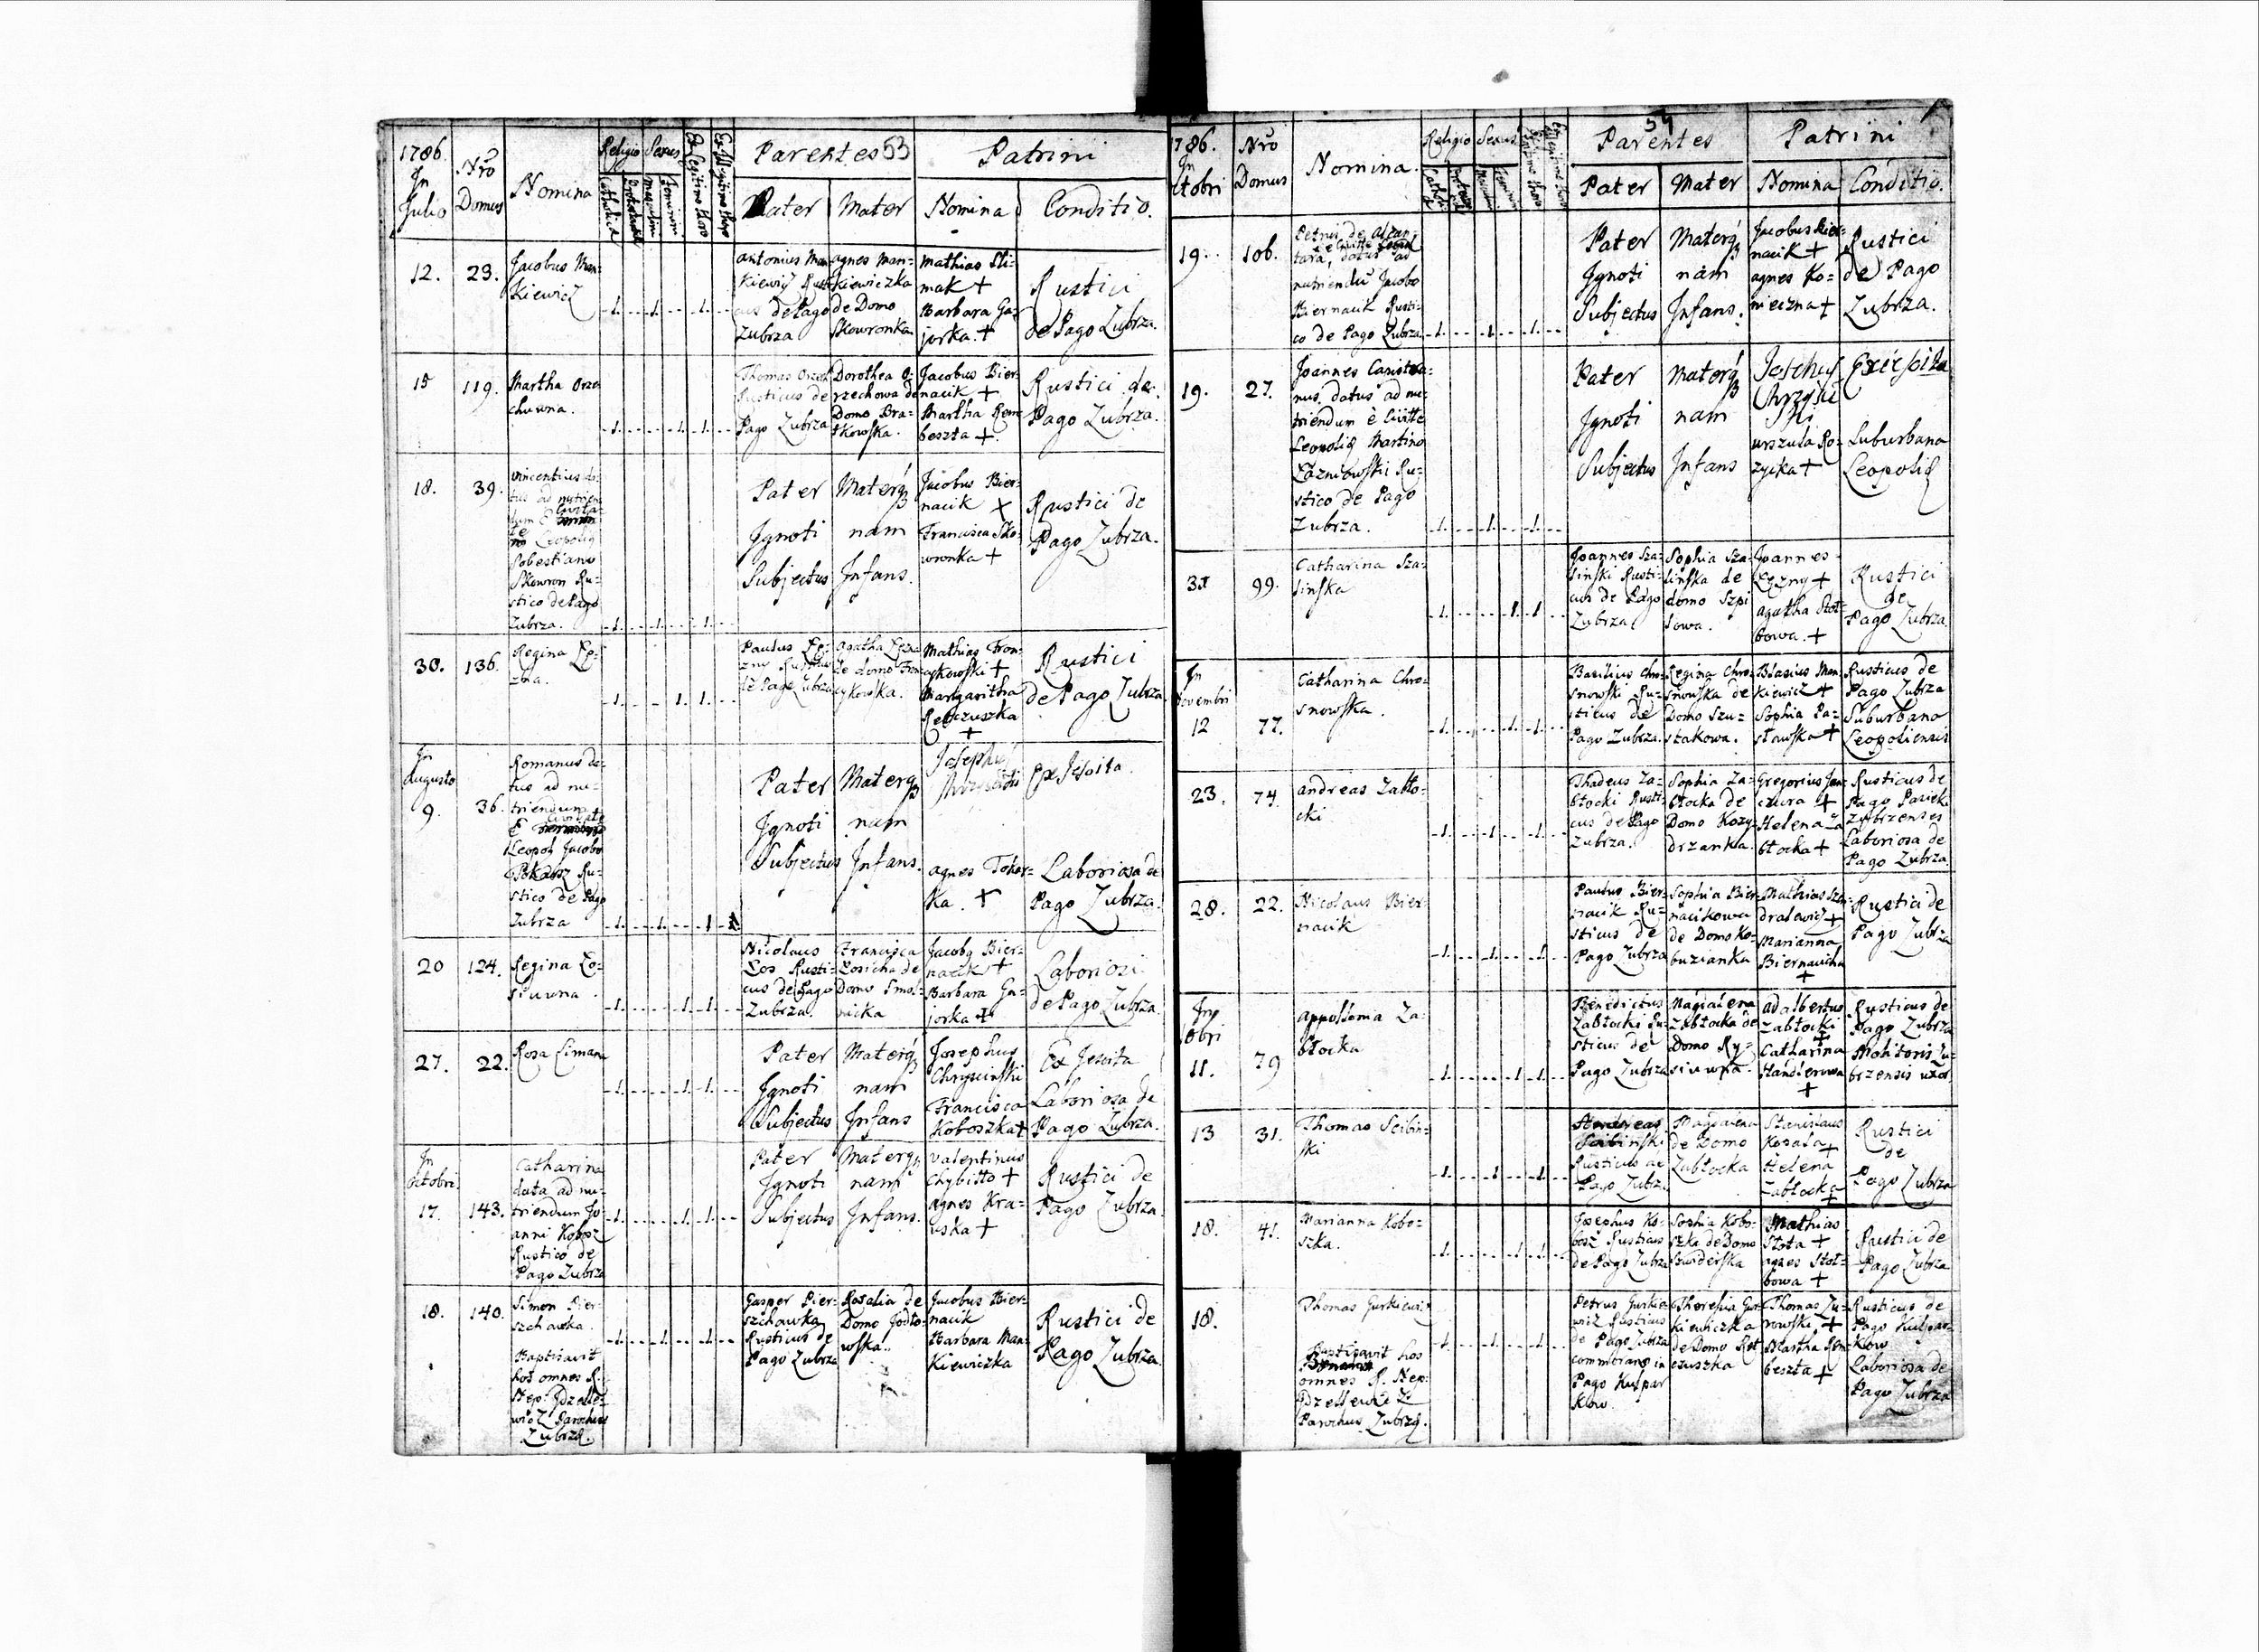 1786. In Julio
Nro Domus
Nomina
Religio
Sexus
Catholica
Ex Legitimo thoro
Ex Illegitimo thoro
Parentes 53
Patrini
Pater
Mater
Nomina
Conditio.
12.
23.
Jacobus Man=
Kiewicz
Antonius Man
Kiewicz Rusti
cus de Pago
Zubrza
Agnes Man=
kiewiczka
de Domo
Skowronka
Mathias Sli=
mak +
Barbara Ga=
jorka. +
Rustici
de Pago Zubrza.
15
119.
Martha Orze
chuwna.
Thomas Orzech
Rusticus de
Pago Zubrza
Dorothea O=
rzechowa de
Domo Bra=
tkowska.
Jacobus Bier=
nacik +
Martha Rem
beszta +
Rustici de
Pago Zubrza.
18.
39.
Vincentius da=
tus ad nutrien
dum è Civita
te Leopolis
Sobestiano
Skowron Ru=
stico de Pago
Zubrza.
Pater
Ignoti
Subjectus
Materq
nam
Infans.
Jacobus Bier=
nacik X
Francisca Sko=
wronka +
Rustici de
Pago Zubrza.
30.
136.
Regina Łę=
zna.
Paulus Łę=
zny Rusticus
de Pago Zubrza
Agatha Łęzna
de domo Fron
cykowska.
Mathias Fron=
cykowski +
Margaritha
Retczuszka
+
Rustici
de Pago Zubrza.
In
Augusto
9.
36.
Romanus da=
tus ad nu=
triendum
è Civitate
Leopol Jacobo
Pokarz Ru=
stico de Pago
Zubrza
Pater
Ignoti
Subjectus
Materq
nam
Infans.
Josephus
Agnes Toker=
ka. +
Ex Jesoita.
Laboriosa de
Pago Zubrza.
20
124.
Regina Ło=
siuwna.
Nicolaus
Łos Rusti=
cus de Pago
Zubrza.
Francisca
Łosicha de
Domo Smol=
nicka
Jacobq Bier=
nacik +
Barbara Ga=
jorka +
Laboriosi
de Pago Zubrza.
27.
22.
Rosa Limana
Pater
Ignoti
Subjectus
Materq
nam
Infans
Josephus
Chrysciński
Francisca
Koboszka +
Ex Jesoita
Laboriosa de
Pago Zubrza.
In
Octobri.
17.
143.
Catharina
data ad nu=
triendum Jo=
anni Kobosz
Rustico de
Pago Zubrza
Pater
Ignoti
Subjectus
Materq
nam
Infans.
Valentinus
Chybitto +
Agnes Kra=
uska +
Rustici de
Pago Zubrza.
18.
140.
Simon Pier=
szchawka.
Baptisavit
hos omnes R.
Step: Gdzelle=
wicz Parochus
Zubrzą.
Gasper Pier=
szchawka
Rusticus de
Pago Zubrza
Rosalia de
Domo Jodło=
wska.
Jacobus Bier=
nacik
Barbara Man=
Kiewiczka
Rustici de
Pago Zubrza.
1786. In
Octobri
Nro Domus
Nomina.
Religio
Sexus
54
Parentes
Patrini
Pater
Mater
Nomina
Conditio.
19.
106.
Petrus de Alcan=
tara, datus ad
nutriendū Jacobo
Biernacik Rusti=
co de Pago Zubrza
Pater
Ignoti
Subjectus
Materq
nam
Infans.
Jacobus Bier=
nacik +
Agnes Ko=
nieczna +
Rustici
de Pago
Zubrza.
19.
27.
Joannes Cantia=
nus. datus ad nu=
triendum è Civitte
Leopolis Martino
Łazniowski Ru=
stico de Pago
Zubrza.
Pater
Ignoti
Subjectus
Materq
nam
Infans
Urszula Ro=
zycka +
Suburbana
Leopolis
31
99.
Catharina Sza=
linska
Joannes Sza=
linski Rusti=
cus de Pago
Zubrza
Sophia Sza=
linska de
domo Szpi
towa.
Joannes
Łęzny +
Agatha Stoł=
bowa. +
Rustici
de
Pago Zubrza
In
Novembri
12
77.
Catharina Chro=
snowska.
Basilius Chro=
snowski Ru=
sticus de
Pago Zubrza.
Regina Chro=
snowska de
Domo Szu=
stakowa.
Blasius Man=
kiewicz +
Sophia Pa=
stawska +
Rusticus de
Pago Zubrza
Suburbana
Leopoliensis
23.
74.
Andreas Zabło=
cki.
Thadeus Za=
błocki Rusti=
cus de Pago
Zubrza.
Sophia Za=
błocka de
Domo Kozy=
drzanka.
Gregorius Jan=
czura +
Helena Za
błocka +
Rusticus de
Pago Pasieki
Zubrzenses
Laboriosa de
Pago Zubrza.
28.
22.
Nicolaus Bier=
nacik
Paulus Bier=
nacik Ru=
sticus de
Pago Zubrza
Sophia Bier=
nacikowa
de Domo Ko=
buzianka
Mathias Szan=
dralewicz +
Marianna
Biernacicha
+
Rustici de
Pago Zubrza
In
10bri
11.
79
Appollonia Za=
błocka
Benedictus
Zabłocki Ru=
sticus de
Pago Zubrza
Magdalena
Zabłocka de
Domo Ry=
siuwna.
Adalbertus
Zabłocki
+
Catharina
Handlerowa
+
Rusticus de
Pago Zubrza
Molitoris Zu=
brzensis uxor.
13
31.
Thomas Scibin=
ski
Andreas
Scibinski
Rusticus de
Pago Zubrz.
Magdalena
de Domo
Zabłocka
Stanislaus
Kosala +
Helena
Zabłocka
+
Rustici
de
Pago Zubrza
18.
41.
Marianna Kobo=
szka.
Josephus Ko=
bosz Rusticus
de Pago Zubrza
Sophia Kobo=
szka de Domo
Szwiderska
Mathias
Słota +
Agnes Stoł=
bowa +
Rustici de
Pago Zubrza
18.
Thomas Gurkiewicz
Baptisavit hos
omnes R. Step:
Gdzellewicz
Parochus Zubrzą.
Petrus Gurkie=
wiz Rusticus
de Pago Zubrza
commorans in
Pago Kulpar
klow.
Theresia Gur=
kiewiczka
de Domo Ret
czuszka
Thomas Zu=
rowski +
Martha Rem=
beszta +
Rusticus de
Pago Kulpar=
Klow
Laboriosa de
Pago Zubrza